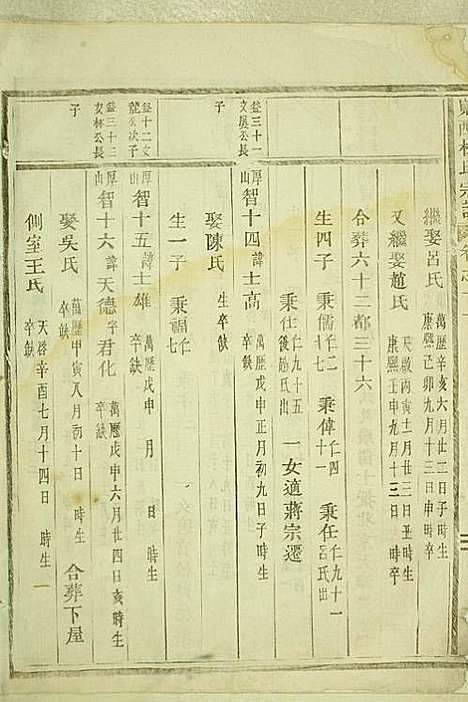 繼娶呂氏 萬曆辛亥六月廿二日子時生 康熙己卯九月十三日申時卒
又繼娶趙氏 天啟丙寅十一月廿三日丑時生 康熙壬申九月十三日 時卒
合葬六十二都三十六
生四子 秉儒仁二十七 秉偉仁四十一 秉任仁九十一呂氏出
秉仕仁九十五後趙氏出 一女適蔣宗遷
益三十一文奐公長子
厚山 智十四 諱士高 萬曆戊申正月初九日子時生 卒缺
娶陳氏 生卒缺
生一子 秉福仁七
益十二文龍公次子
厚山 智十五 諱士雄 萬曆戊申 月 日 時生 卒缺
益三十三文林公長子
厚山 智十六 諱天德字君化 萬曆戊申六月廿四日亥時生 卒缺
娶吳氏 萬曆甲寅八月初十日 時生 卒缺 合葬下屋
側室王氏 天啓辛酉七月十四日 時生 卒缺